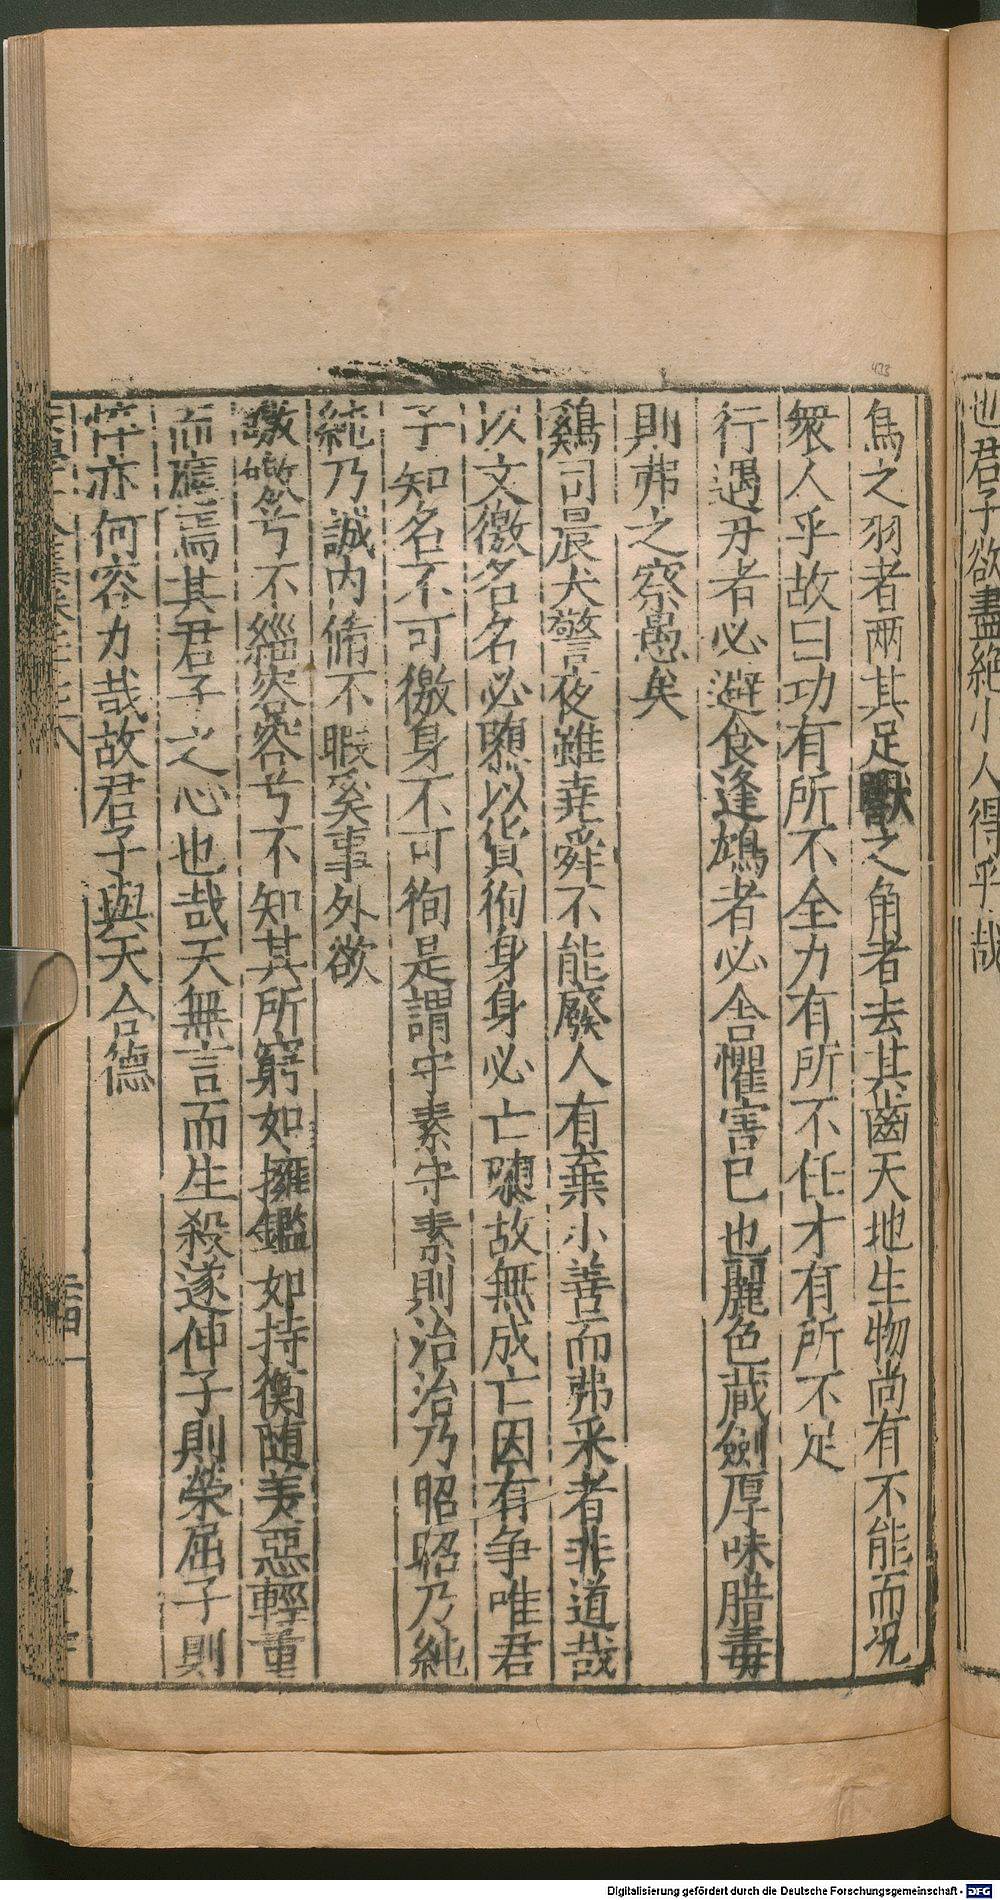 也君子欲盡絶小人得乎哉
鳥之羽者兩其足獸之角者去其齒天地生物尚有不能而况
衆人乎故曰功有所不全力有所不任才有所不足
行遇刃者必避食逢鴆者必舍懼害已也麗色藏劍厚味腊毒
則弗之察愚矣
鷄司晨犬警夜雖堯舜不能廢人有棄小善而弗采者非道哉
以文徼名名必隳以貨徇身身必亡隳故無成亡因有争唯君
子知名不可徼身不可徇是謂守素守素則治治乃昭昭乃純
純乃誠内脩不暇奚事外欲
皦皦兮不緇容容兮不知其所窮如擁鑑如持衡随美惡輕重
而應焉其君子之心也哉天無言而生殺遂伸子則榮屈子則
悴亦何容力哉故君子與天合德
433
Digitalisierung gefördert durch die Deutsche Forschungsgemeinschaft - DFG